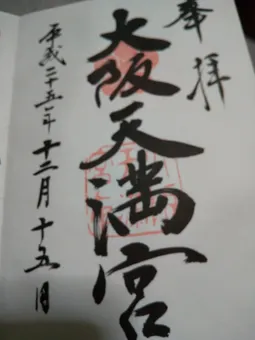 奉拝
大阪天満宮
平成二十五年十二月十五日